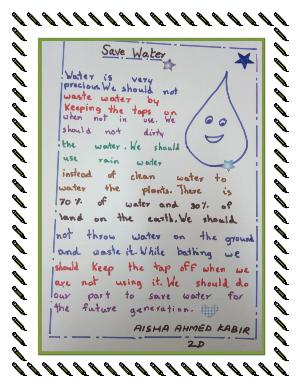 Save Water
Water is very
precious. We should not
waste water by
keeping the taps on
when not in use. We
should not dirty
the water. We should
use rain water
instead of clean water to
water the plants. There is
70% of water and 30% of
land on the earth. We should
not throw water on the ground
and waste it. While bathing we
should keep the tap off when we
are not using it. We should do
our part to save water for
the future generation.
AISHA AHMED KABIR
2D